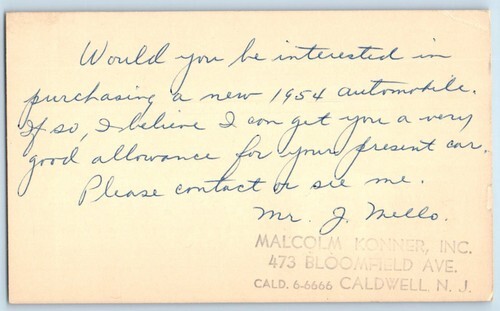 Would you be interested in
purchasing a new 1954 automobile.
If so, I believe I can get you a very
good allowance for your present car.
Please contact or see me.
Mr. J. Mello.
MALCOLM KONNER, INC.
473 BLOOMFIELD AVE.
CALD. 6-6666 CALDWELL, N. J.